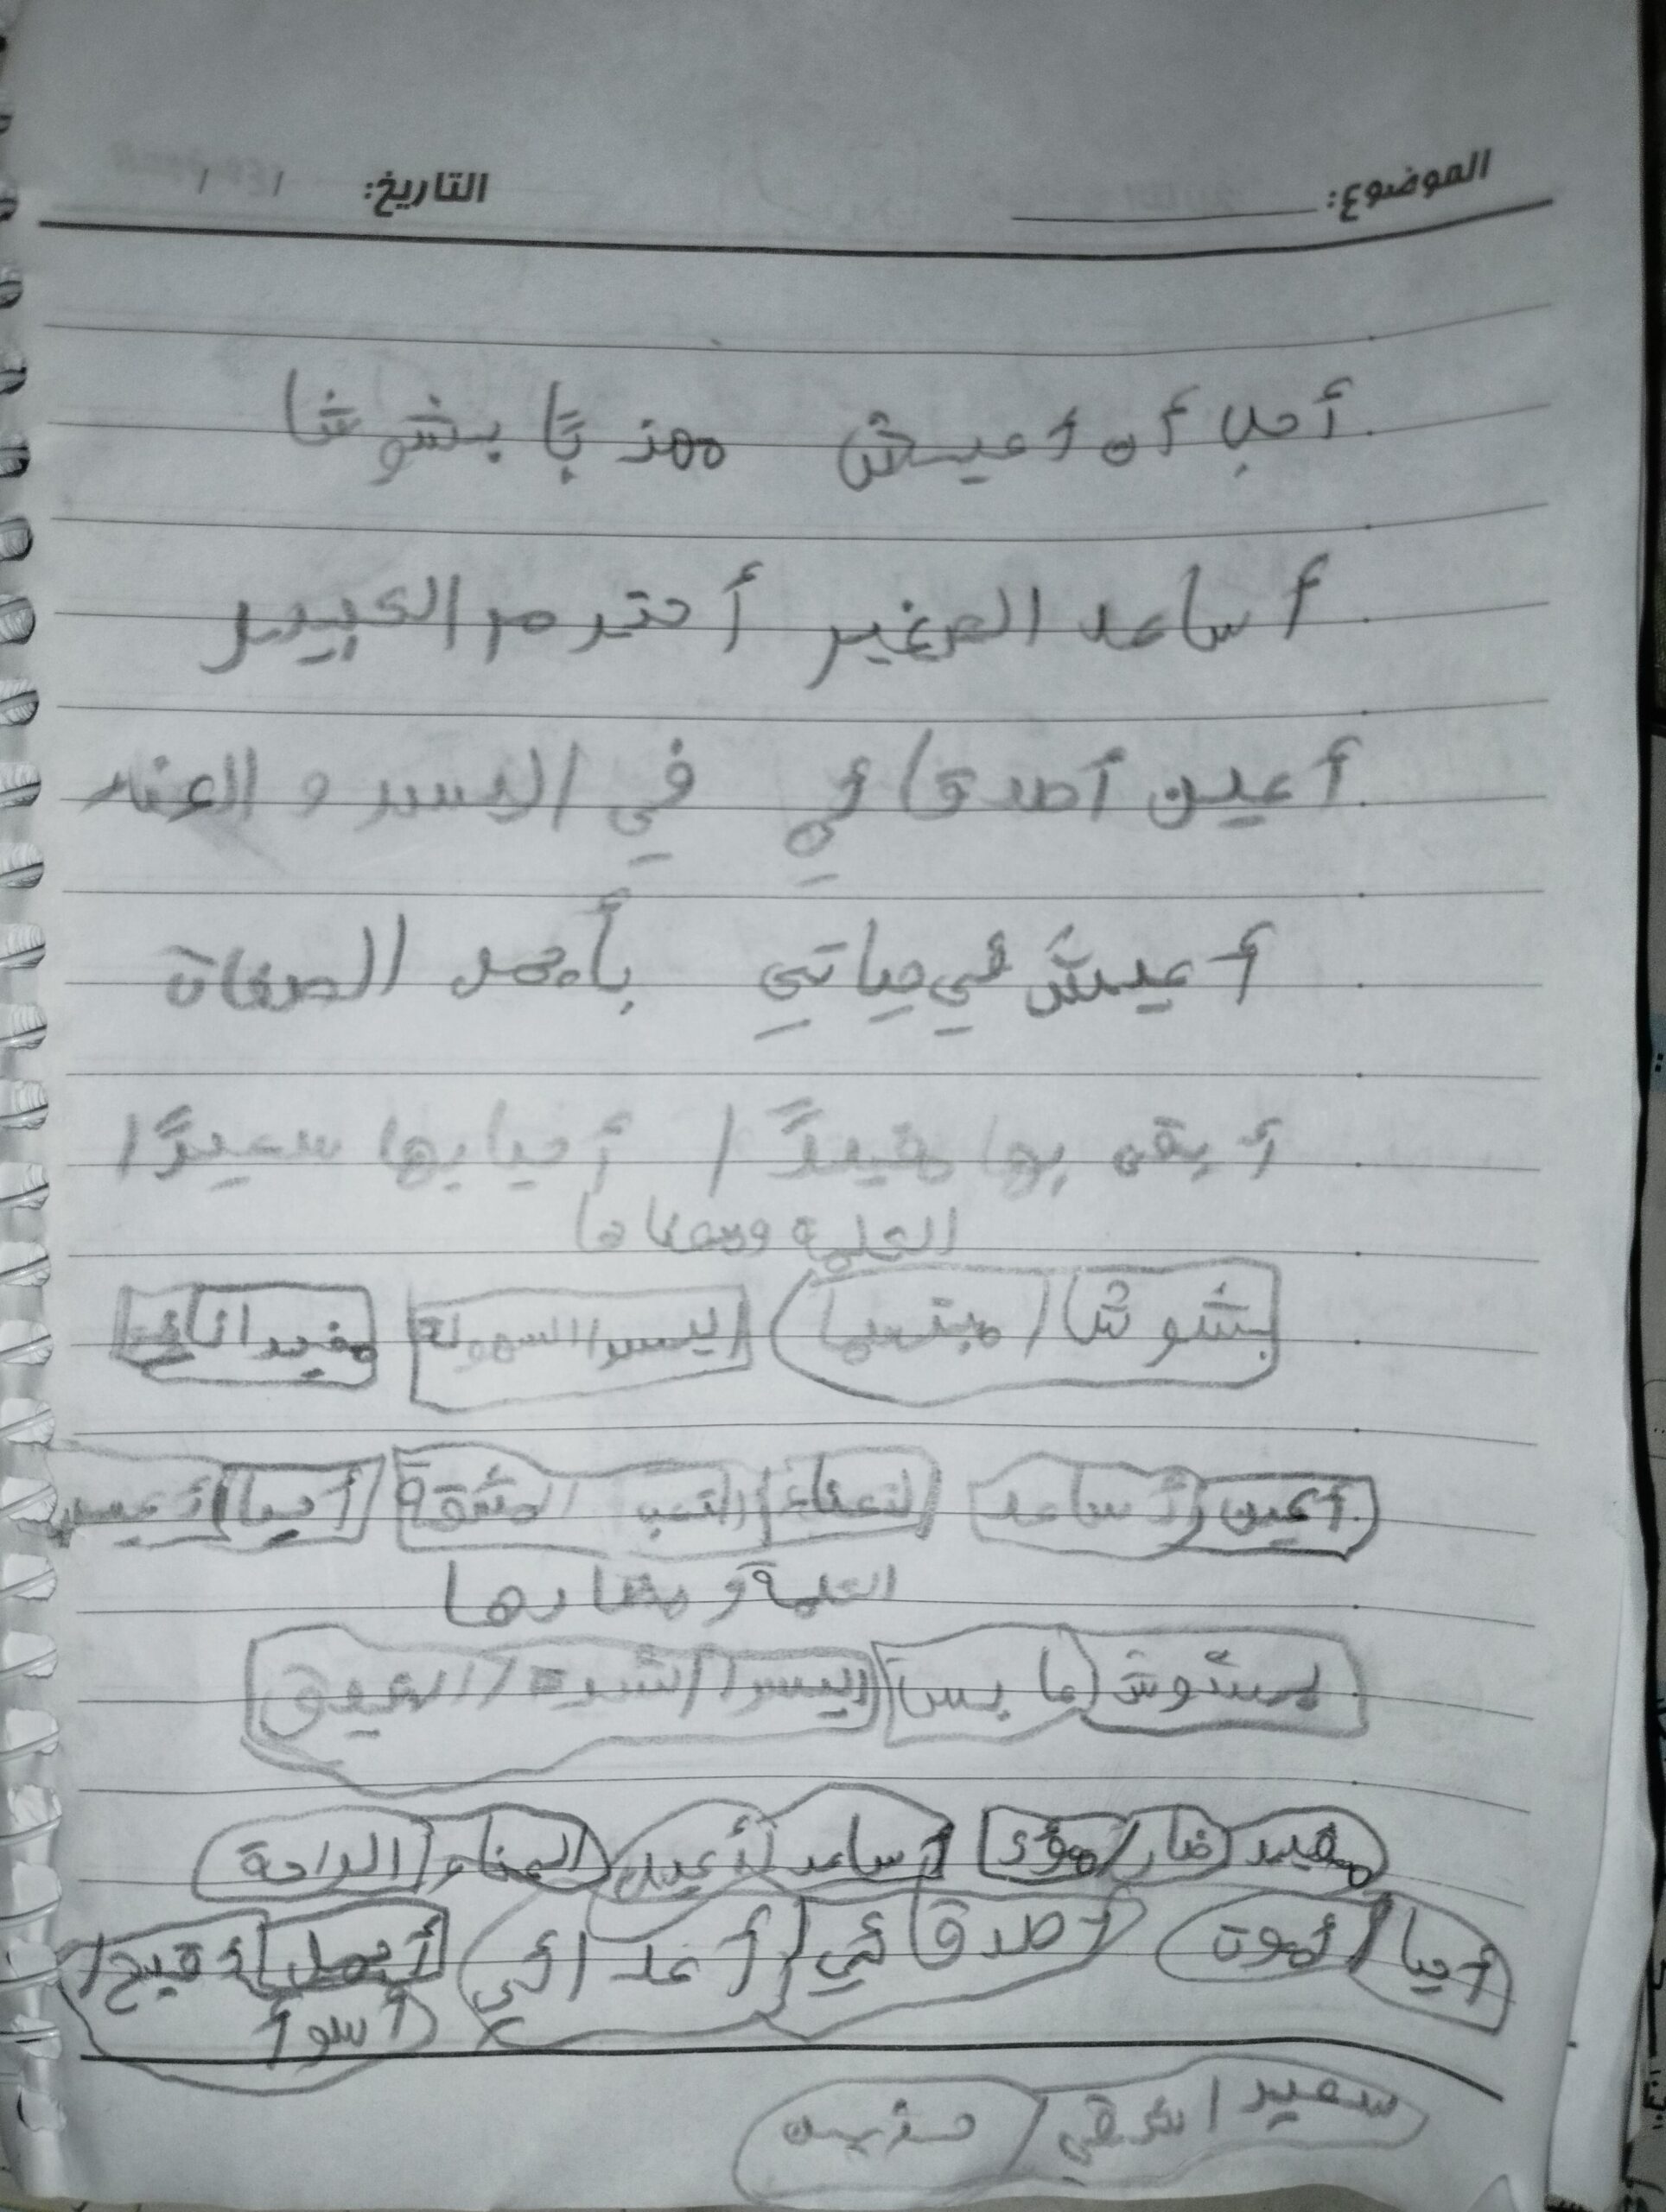 الموضوع: التاريخ: / /
أحب أن أعيش مهذبًا بشوشا
أساعد الصغير أحترم الكبير
أعين أصدقائي في اليسر و العناء
أعيش في حياتي بأجمل الصفات
أبقى بها مفيدًا / أحيا بها سعيدًا
الكلمة ومعناها
بشوشا / مبتسما اليسر / السهولة مفيدا / نافع
أعين / أساعد العناء / التعب المشقة أحيا / أعيش
الكلمة و مضادها
بشوش / عابس اليسر / الشدة / الضيق
مفيد / ضار / مؤذ أساعد / أعين العناء / الراحة
أحيا / أموت أصدقائي / أعدائي أجمل / أقبح /
أسوأ
سعيد / شقي / حزين